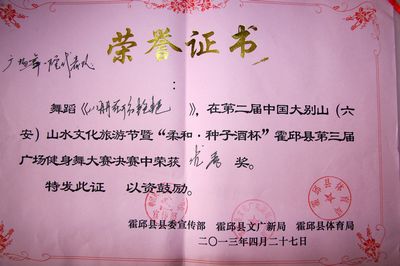 荣誉证书
广场舞
：
舞蹈《八月桂花 》，在第二届中国大别山（六
安）山水文化旅游节暨“柔和·种子酒杯”霍邱县第三届
广场健身舞大赛决赛中荣获 优秀 奖。
特发此证 以资鼓励。
霍邱县县委宣传部 霍邱县文广新局 霍邱县体育局
二〇一三年四月二十七日